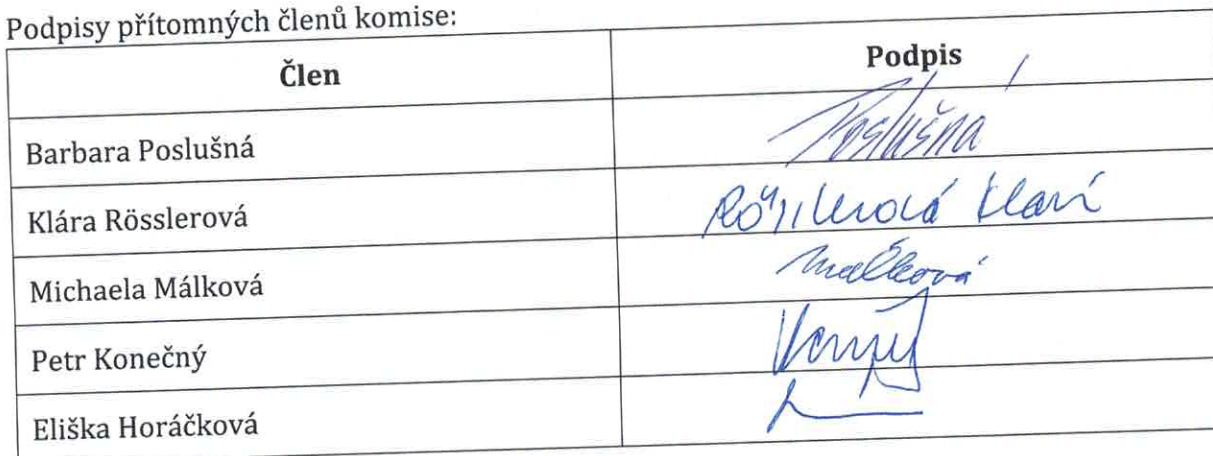 Podpisy přítomných členů komise:
Člen Podpis
Barbara Poslušná Poslušná
Klára Rösslerová
Michaela Málková Málková
Petr Konečný
Eliška Horáčková